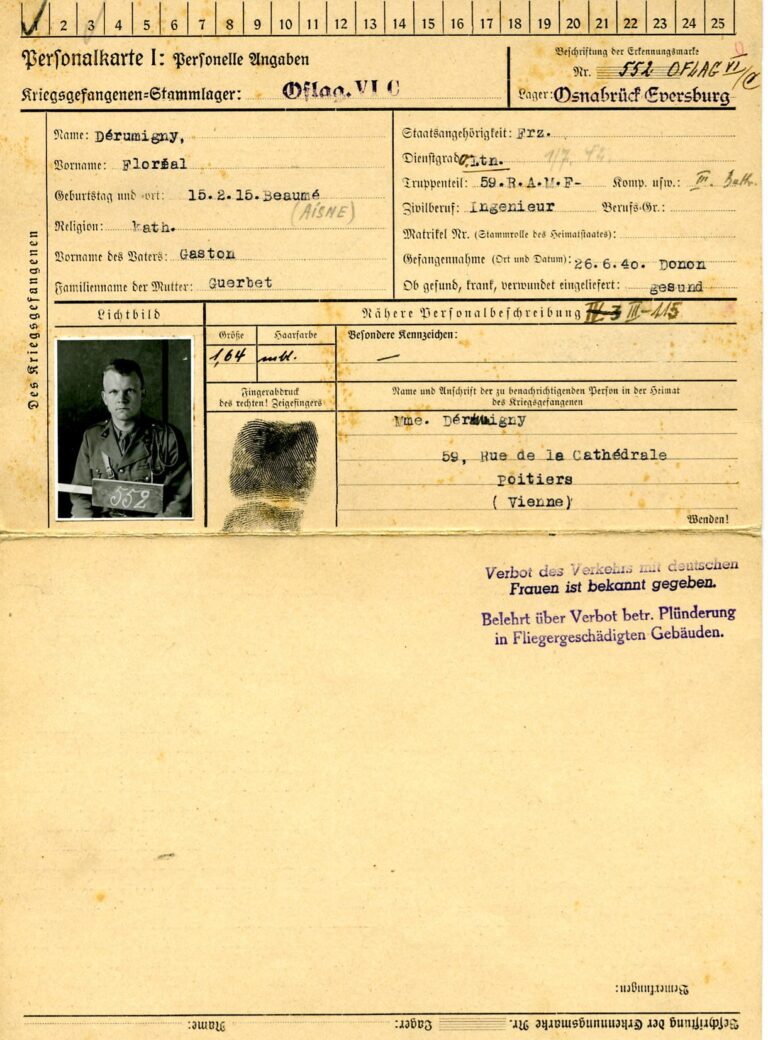 1 2 3 4 5 6 7 8 9 10 11 12 13 14 15 16 17 18 19 20 21 22 23 24 25
Personalkarte I: Personelle Angaben
Kriegsgefangenen=Stammlager: Oflag. VI C
Beschriftung der Erkennungsmarke
Nr. 552 OFLAG VI/C
Lager: Osnabrück Eversburg
Des Kriegsgefangenen
Name: Dérumigny,
Vorname: Floréal
Geburtstag und =ort: 15.2.15. Beaumé
(AISNE)
Religion: kath.
Vorname des Vaters: Gaston
Familienname der Mutter: Guerbet
Staatsangehörigkeit: Frz.
Dienstgrad: Ltn.
Truppenteil: 59.R.A.M.F- Komp. usw.: III. Battr.
Zivilberuf: Ingenieur Berufs-Gr.:
Matrikel Nr. (Stammrolle des Heimatstaates):
Gefangennahme (Ort und Datum): 26.6.40. Donon
Ob gesund, krank, verwundet eingeliefert: gesund
Lichtbild
Nähere Personalbeschreibung III-115
Größe
Haarfarbe
Besondere Kennzeichen:
1,64
—
552
Fingerabdruck
des rechten! Zeigefingers
Name und Anschrift der zu benachrichtigenden Person in der Heimat
des Kriegsgefangenen
Mme. Dérumigny
59, Rue de la Cathédrale
Poitiers
( Vienne)
Wenden!
Verbot des Verkehrs mit deutschen
Frauen ist bekannt gegeben.
Belehrt über Verbot betr. Plünderung
in Fliegergeschädigten Gebäuden.
Bemerkungen:
Beschriftung der Erkennungsmarke Nr. Lager: Name: